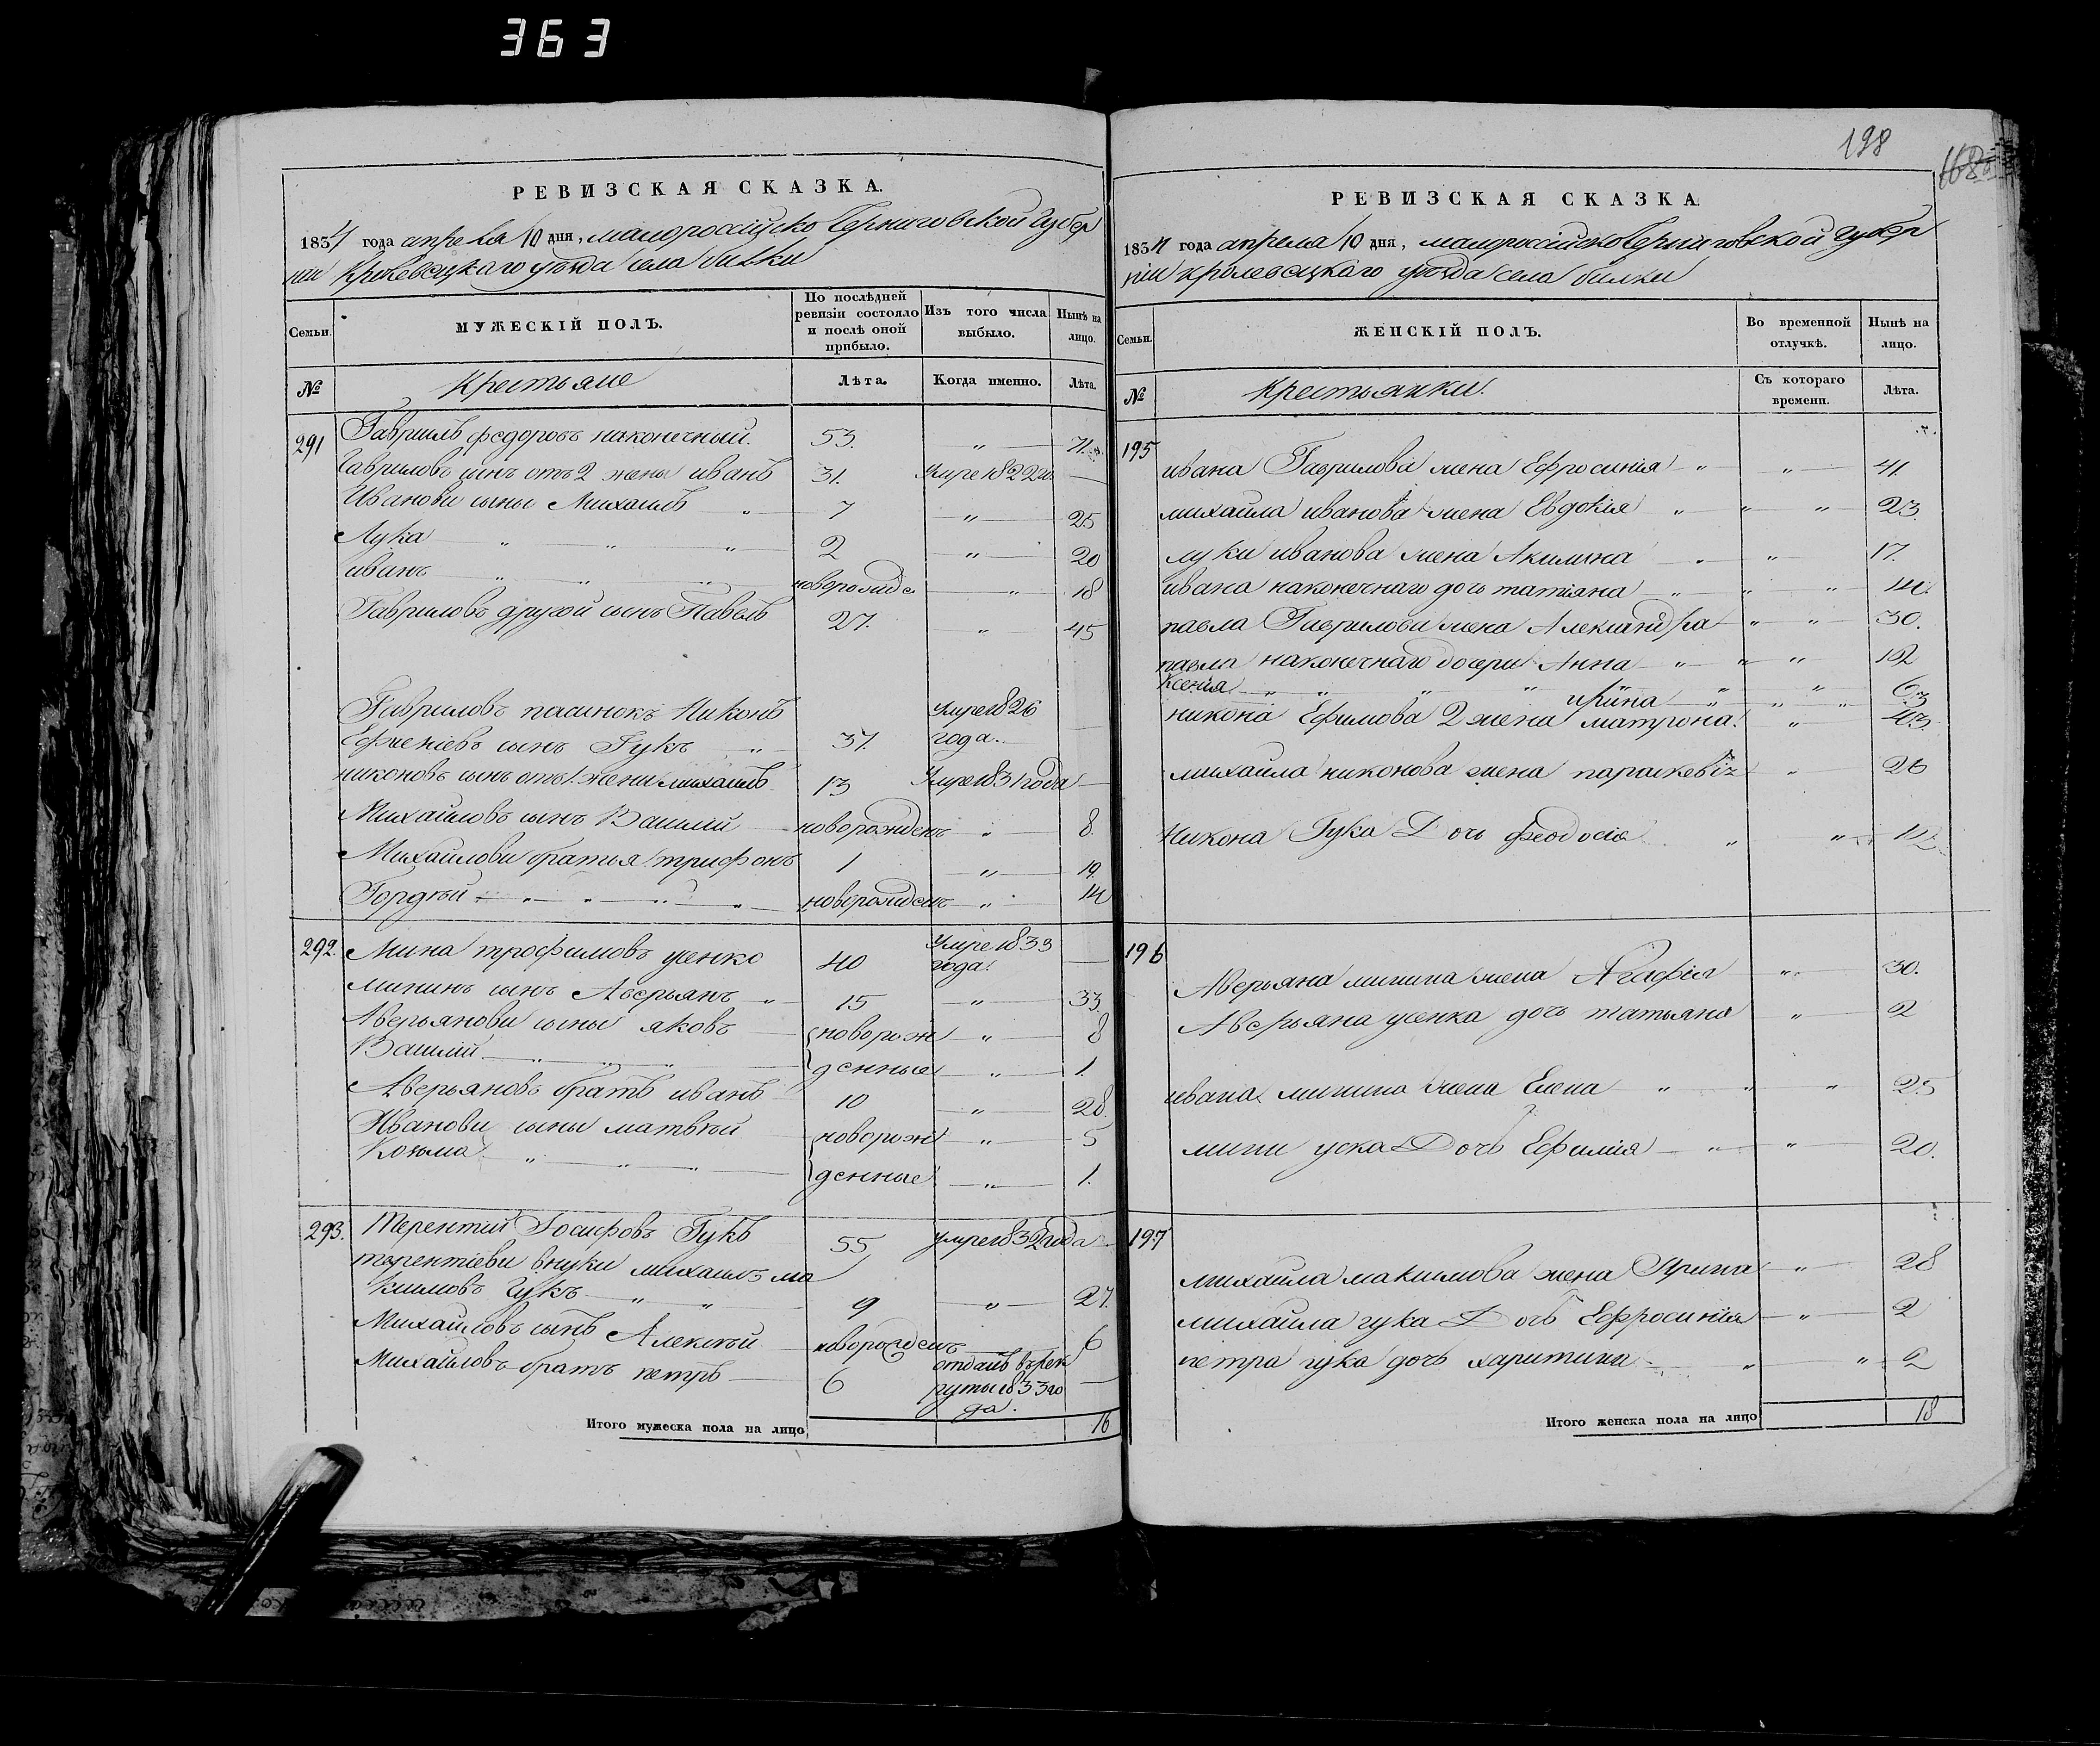 363
198
РЕВИЗСКАЯ СКАЗКА.
1834 года апреля 10 дня, малороссійско Черниговской Губер
ніи Кролевецкаго уезда села билки
Семьи.
МУЖЕСКІЙ ПОЛЪ.
По послѣдней ревизіи состояло и послѣ оной прибыло.
Изъ того числа выбыло.
Нынѣ на лицо.
№
Крестьяне
Лѣта.
Когда именно.
Лѣта.
291
Гаврилъ федоровъ наконечный. 53. " 71.
Гавриловъ сынъ отъ 2 жены иванъ 31. Умре 1822 го
Иванови сыны Михаилъ " 7 " 25
Лука " " " 2 " 20
иванъ " " " новорожде " 18
Гавриловъ другой сынъ Павелъ 27. " 45
Гавриловъ пасинокъ Никонъ Умре 1826
сынъ Гукъ " 37. года.
никоновъ сынъ отъ 1 жени михаилъ 13 Умре 1831 года
Михайловъ сынъ Василій новорожденъ " 8.
Михайлови братья трифонъ 1 " 19.
Гордѣй " " " " " новорожденъ " 14
292. Мина трофимовъ усенко 40 Умре 1833
года.
мининъ сынъ Аверьянъ " 15 " 33.
Аверьянови сыны яковъ новорож " 8
Василій " " " денные " 1.
Аверьяновъ братъ иванъ 10 " 28.
Иванови сыны матвѣй новорож " 5
Козьма " " " денные " 1.
293. Терентий Іосифовъ Гукъ 55 умре 1832 года
терентіеви внуки михаилъ ма
ксимовъ Гукъ " " 9 " 27.
Михайловъ сынъ Алексѣй новорожденъ 6
Михайловъ братъ петръ 6 отданъ въ рек
руты 1833 го
да.
Итого мужеска пола на лицо 16
РЕВИЗСКАЯ СКАЗКА
1834 года апреля 10 дня, малоросійско Черниговской Губер
ніи кролевецкаго уезда села билки
Семьи.
ЖЕНСКІЙ ПОЛЪ.
Во временной отлучкѣ.
Нынѣ на лицо.
№
Крестьянки.
Съ котораго времени.
Лѣта.
195
ивана Гаврилова жена Ефросинія " " 41.
михайла иванова жена Евдокія " " " 23.
луки иванова жена Акилина " " 17.
ивана наконечнаго дочъ татіяна " " " 14.
павла Гаврилова жена Александра " " 30.
павла наконечнаго дочери Анна " " " 12
Ксенія " " " " ирина " " " " 6. 3
никона Ефимова 2 жена матрона. " 43.
михайла никонова жена параскевія " 26
Никона Гука Дочъ феодосія " " 12.
196
Аверьяна минина жена Агафія " 30.
Аверьяна усенка дочъ татьяна " 2
ивана минина жена Елена " " " 25
мини уска Дочъ Ефимія " " 20.
197
михайла максимова жена Ирина " 28
михайла гука Дочъ Ефросинія " 2
петра гука дочъ харитина " " 2
Итого женска пола на лицо 18